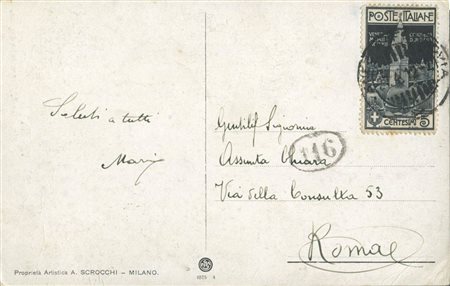 POSTE ITALIANE
CENTESIMI 5
Saluti a tutti
Maria
Gentil Signorina
Assunta Chiara
116
Via della Consulta 53
Roma
Proprietà Artistica A. SCROCCHI – MILANO.